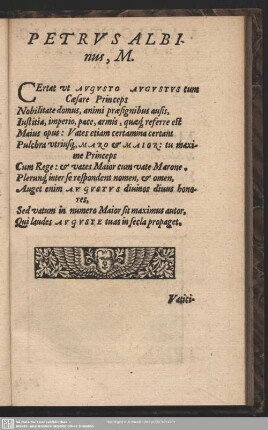 PETRVS ALBI-
nus, M.
CErtat vt AVGVSTO AVGVSTVS cum
Cæsare Princeps
Nobilitate domus, animi præsignibus ausis,
Iustitia, imperio, pace, armis, quæq; referre est
Maius opus: Vates etiam certamina certant
Pulchra vtriusq; MARO & MAIOR: tu maxi-
me Princeps
Cum Rege: & vates Maior cum vate Marone.
Plerunq; inter se respondent nomen, & omen,
Auget enim AVGVSTVS diuinos diuus hono-
res,
Sed vatum in numero Maior sit maximus autor,
Qui laudes AVGVSTE tuas in secla propaget.
Vatici-